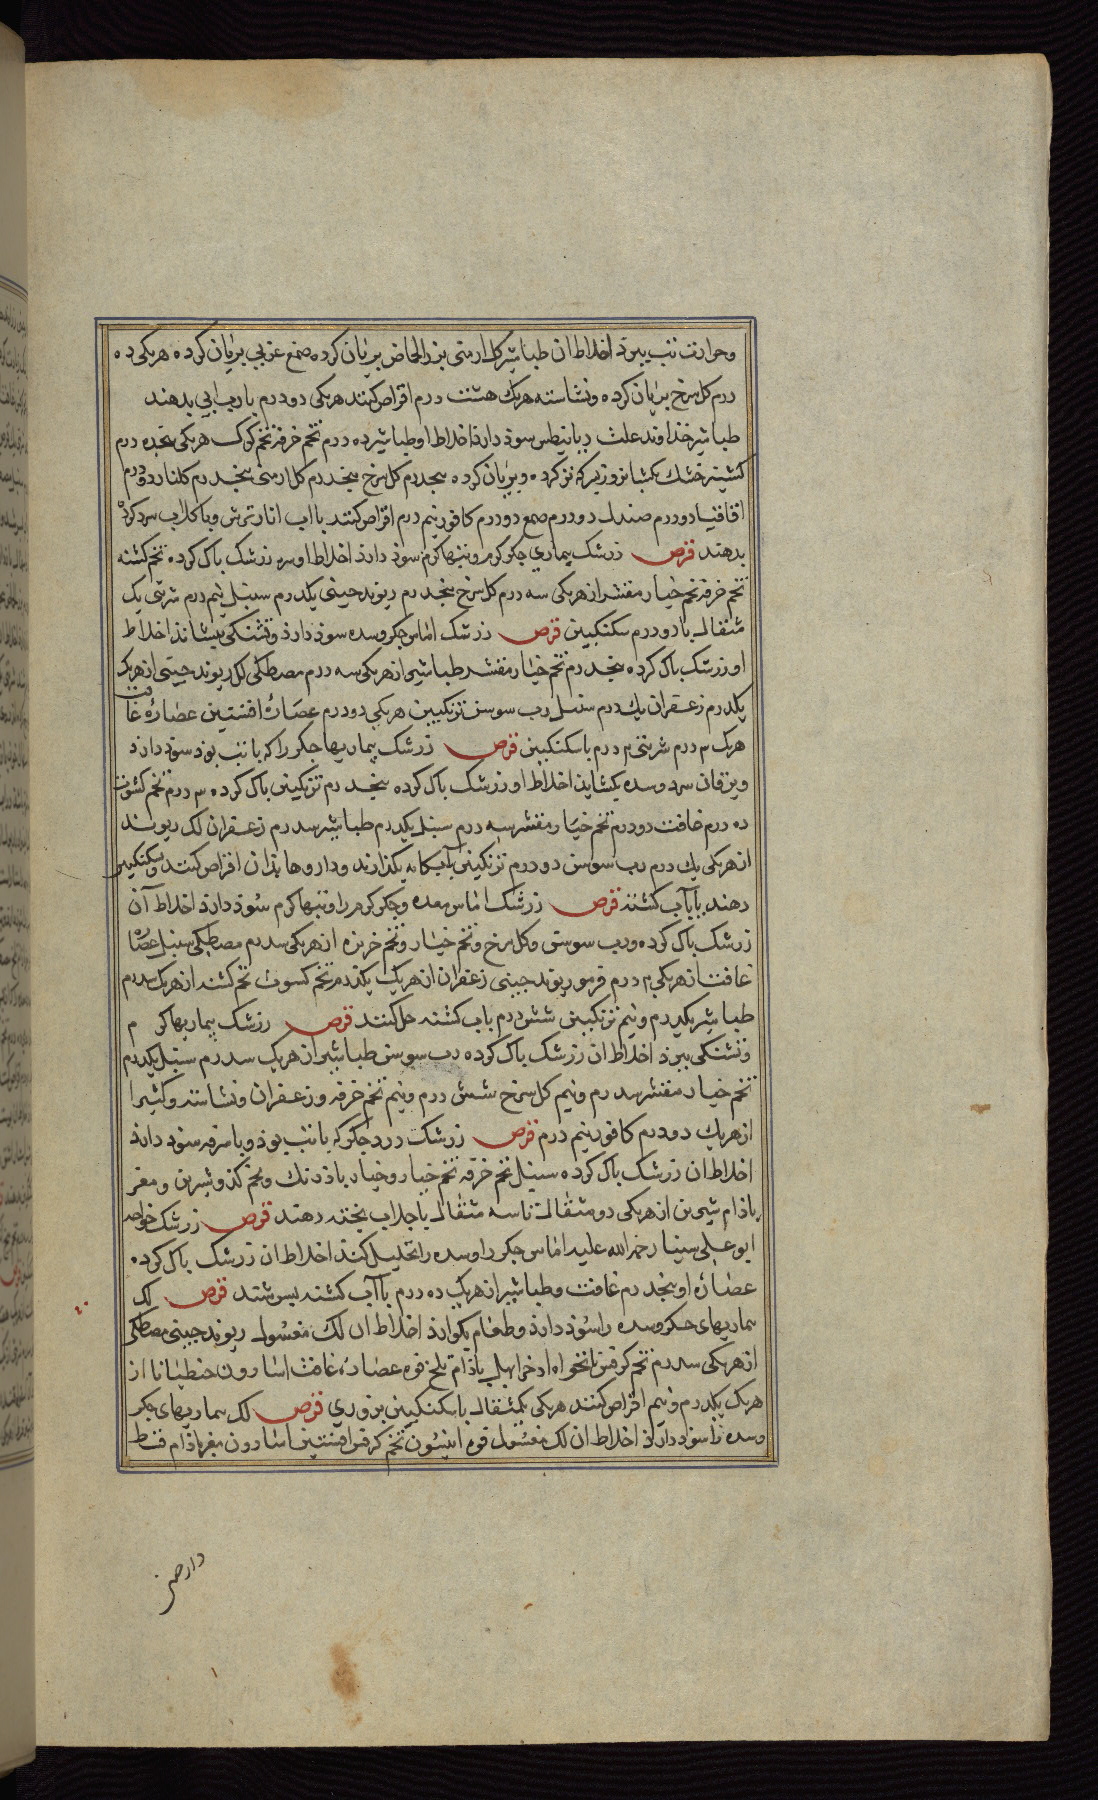 وحرارت تب ببرد اخلاط ان طباشیر کل ارمنی بزر الحاض بریان کرده صمغ عربی بریان کرده هریکی ده
درم کل سرخ بریان کرده ونشاسته هریک هشت درم اقراص کنند هریکی دودرم باریب ابی بدهند
طباشیر خداوند علت دیابیطس سوذ دارذ اخلاط او طباشیر ده درم تخم خرفه تخم کوک هریکی پنجده درم
کشنیز خشک یکشبانروز کرده وبریان کرده پنجدرم کل سرخ پنجدرم کل ارمنی پنجدرم کلنار دودرم
اقاقیا دودرم صندل دودرم صمغ دودرم کافور نیم درم اقراص کنند بااب انار ترش ویا کلاب سرد کرده
بدهند قرص زرشک بیماری جکر کرم وتبها کرم سوذ دارذ اخلاط او زرشک باک کرده تخم کشنه
تخم خرفه تخم خیار مقشر ازهریکی سه درم کل سرخ پنجدرم ریوند جینی یکدرم سنبل نیم درم شربتی یک
مثقال بادودرم سکنکبین قرص زرشک اماس جکر وسده سوذ دارذ وتشنکی بنشاند اخلاط
او زرشک باک کرده پنجدرم تخم خیار مقشر طباشیر ازهریکی سه درم مصطکی لک ریوند جینی ازهریک
یکدرم زعفران یک درم سنبل رب سوسن ترنکبین هریکی دودرم عصاره افسنتین عصاره غافت
هریک م درم شربتی م درم باسکنکبین قرص زرشک بیماریها جکر را که باتب بوذ سوذ دارذ
ویرقان سرد وسده بکشاید اخلاط او زرشک باک کرده پنجدرم ترنکبین باک کرده م درم تخم کشوث
ده درم غافت دودرم تخم خیار مقشر سه درم سنبل یکدرم طباشیر سدرم زعفران لک ریوند
ازهریکی یک درم رب سوسن دودرم ترنکبین بآب بکدازند وداروها بذان اقراص کنند وسکنکبین
دهند بابآب کشنه قرص زرشک اماس معده وجکر کرم را وتبها کرم سوذ دارذ اخلاط آن
زرشک باک کرده ورب سوسن وکل سرخ وتخم خیار وتخم خربزه ازهریکی سدرم مصطکی سنبل عصاره
غافت ازهریکی م درم فرمو ریوند جینی زعفران ازهریک یکدرم تخم کسوث تخم کشنه ازهریک سدرم
طباشیر یکدرم ونیم ترنکبین شش درم باب کشنه حل کنند قرص زرشک بیماریها کر م
وتشنکی ببرد اخلاط ان زرشک باک کرده رب سوسن طباشیر ازهریک سدرم سنبل یکدرم
تخم خیار مقشر سدرم ونیم کل سرخ شش درم ونیم تخم خرفه وزعفران ونشاسته وکثیرا
ازهریک دودرم کافور نیم درم قرص زرشک درد جکر که باتب بوذ وباسرفه سوذ دارذ
اخلاط ان زرشک باک کرده سنبل تخم خرفه تخم خیار وخیار باذرنک وتخم کذو شیرین ومغز
باذام شیرین ازهریکی دومثقال تاسه مثقال باجلاب بخته دهند قرص زرشک خواجه
ابوعلی سینا رحمه الله علیه اماس جکر را وسده را تحلیل کند اخلاط ان زرشک باک کرده
عصاره او پنجدرم غافت وطباشیر ازهریک ده درم باآب کشنه بسرشند قرص لک
بماریهای جکر وسده را سوذ دارذ وطعام بکوارذ اخلاط ان لک مغسول ریوند جینی مصطکی
ازهریکی سدرم تخم کرفس نانخواه اذخر ابهل باذام تلخ فوه عصاره غافت اسارون جنطیانا از
هریک یکدرم ونیم اقراص کنند هریکی یکمثقال باسکنکبین بزوری قرص لک بماریهای جکر
وسده را سوذ دارذ اخلاط ان لک مغسول فوه انیسون تخم کرفس افسنتین اسارون مغز باذام قسط